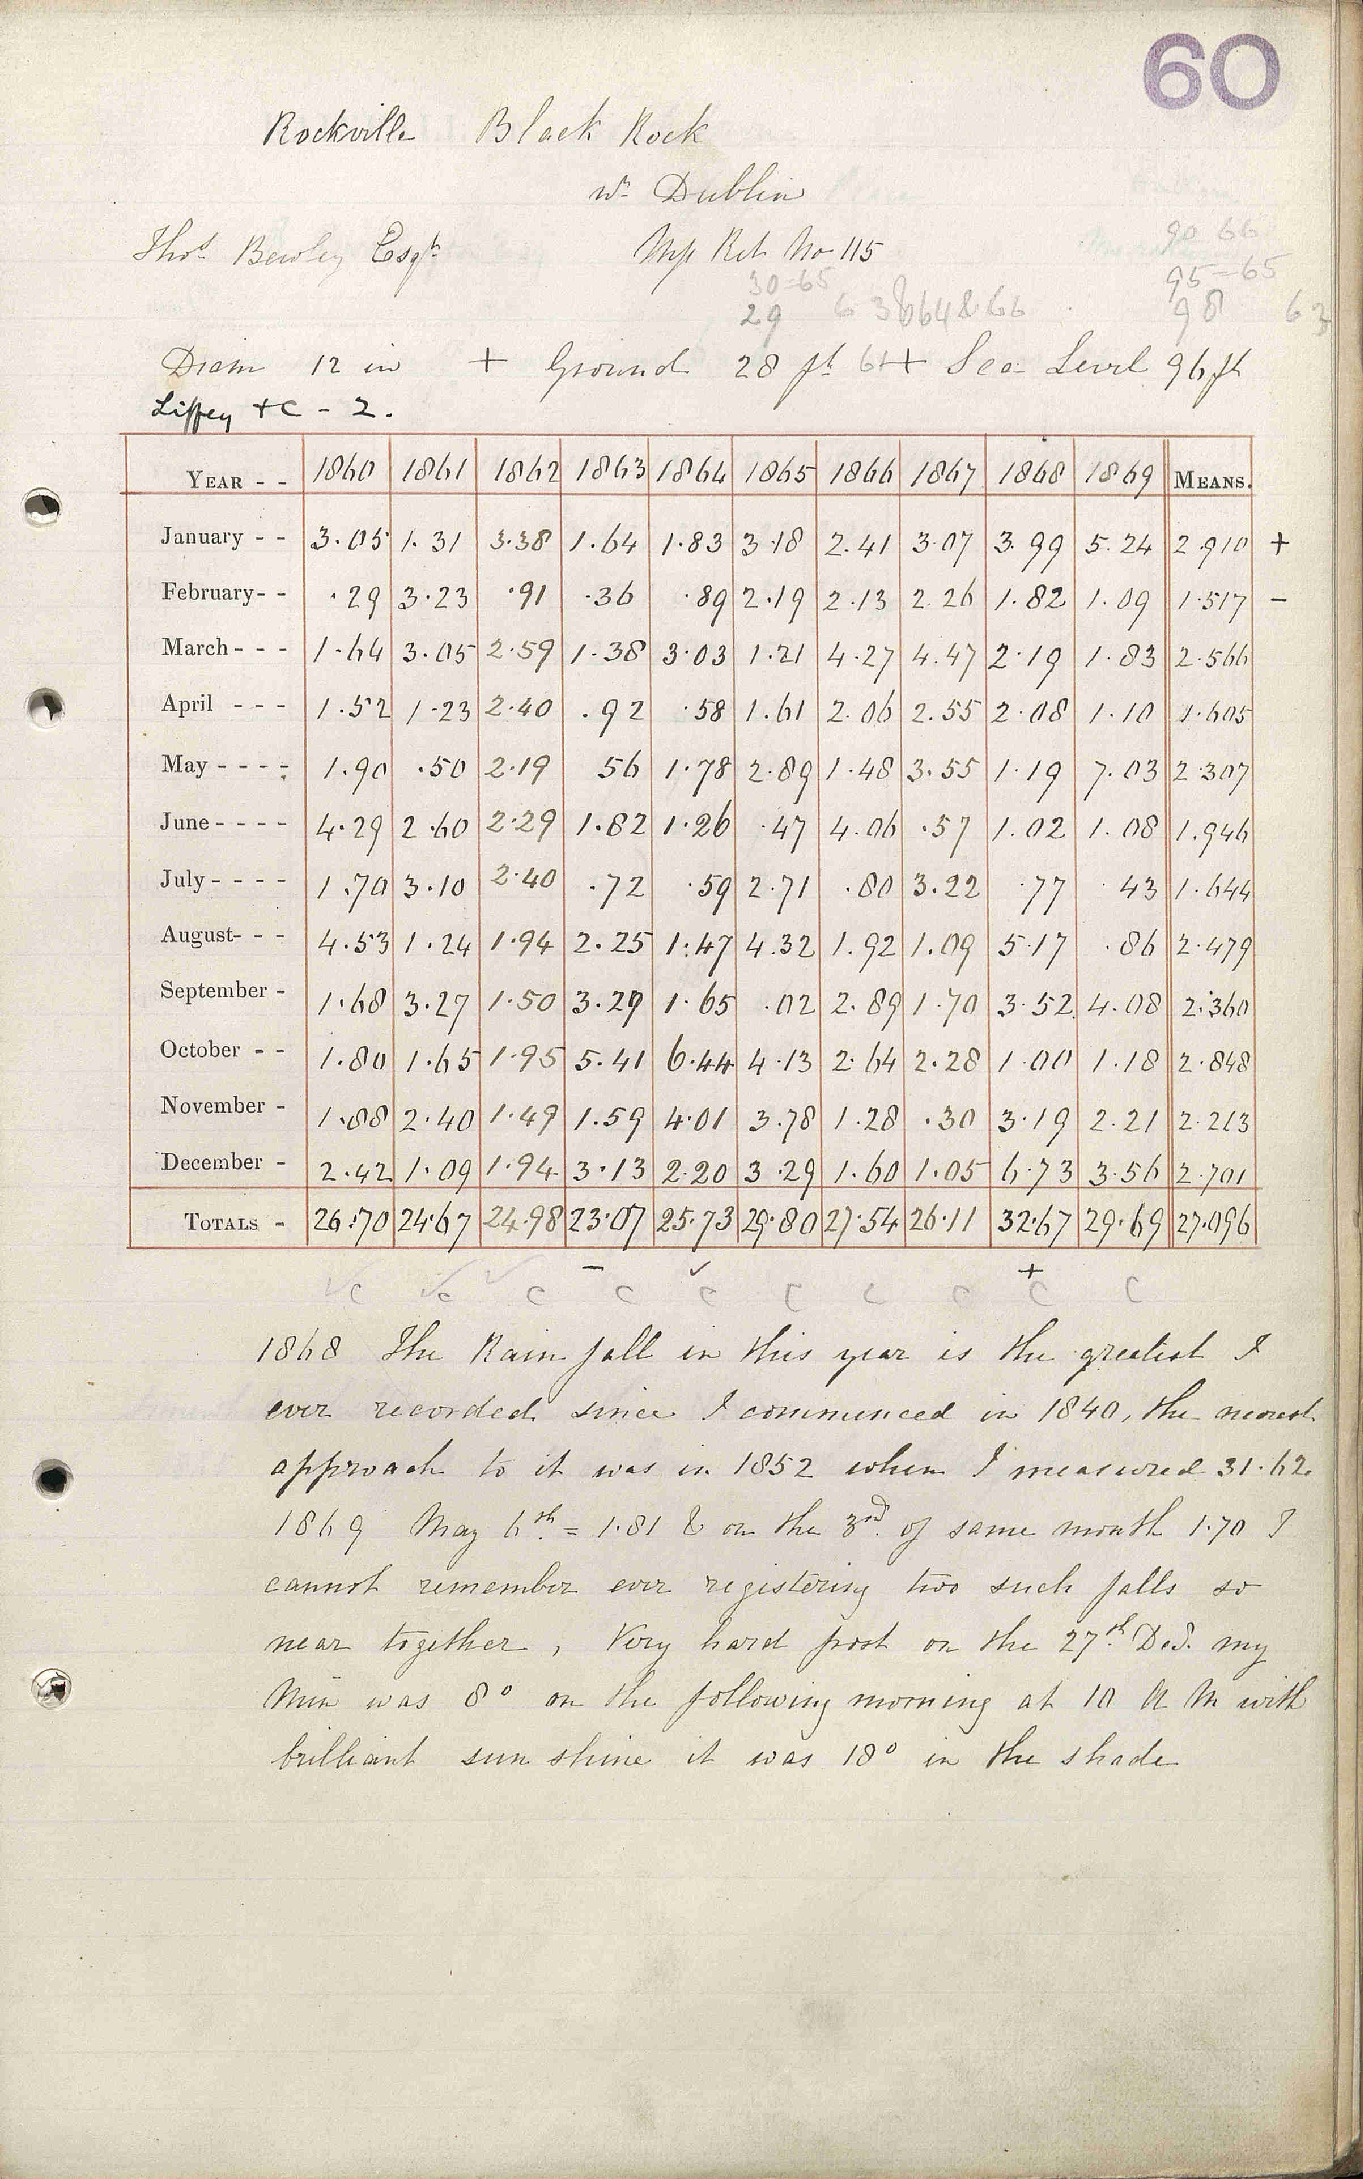 60
Rockville Black Rock
nr Dublin
Thos Bewley Esqr Mp Ret No 115
90 66
30=65 95=65
29 6 3 & 64 & 66 98 63
Diam 12 in + Ground 28 ft 61 + Sea Level 96 ft
Liffey + C - 2.
YEAR - - 1860 1861 1862 1863 1864 1865 1866 1867 1868 1869 MEANS.
January - - 3.05 1.31 3.38 1.64 1.83 3.18 2.41 3.07 3.99 5.24 2.910 +
February- - .29 3.23 .91 .36 .89 2.19 2.13 2.26 1.82 1.09 1.517 -
March - - - 1.64 3.05 2.59 1.38 3.03 1.21 4.27 4.47 2.19 1.83 2.566
April - - - 1.52 1.23 2.40 .92 .58 1.61 2.06 2.55 2.08 1.10 1.605
May - - - - 1.90 .50 2.19 56 1.78 2.89 1.48 3.55 1.19 7.03 2.307
June - - - - 4.29 2.60 2.29 1.82 1.26 .47 4.06 .57 1.02 1.08 1.946
July - - - - 1.70 3.10 2.40 .72 .59 2.71 .80 3.22 .77 43 1.644
August- - - 4.53 1.24 1.94 2.25 1.47 4.32 1.92 1.09 5.17 .86 2.479
September - 1.68 3.27 1.50 3.29 1.65 .02 2.89 1.70 3.52 4.08 2.360
October - - 1.80 1.65 1.95 5.41 6.44 4.13 2.64 2.28 1.00 1.18 2.848
November - 1.88 2.40 1.49 1.59 4.01 3.78 1.28 .30 3.19 2.21 2.213
December - 2.42 1.09 1.94 3.13 2.20 3.29 1.60 1.05 6.73 3.56 2.701
TOTALS - 26.70 24.67 24.98 23.07 25.73 29.80 27.54 26.11 32.67 29.69 27.096
- +
c c c c c c c c c c
1868 The Rain fall in this year is the greatest I
ever recorded since I commenced in 1840, the nearest
approach to it was in 1852 when I measured 31.62
1869 May 6th = 1.81 & on the 3rd of same month 1.70 I
cannot remember ever registering two such falls so
near together, Very hard frost on the 27th Dec. my
Min was 8° on the following morning at 10 A M with
brilliant sun shine it was 18° in the shade